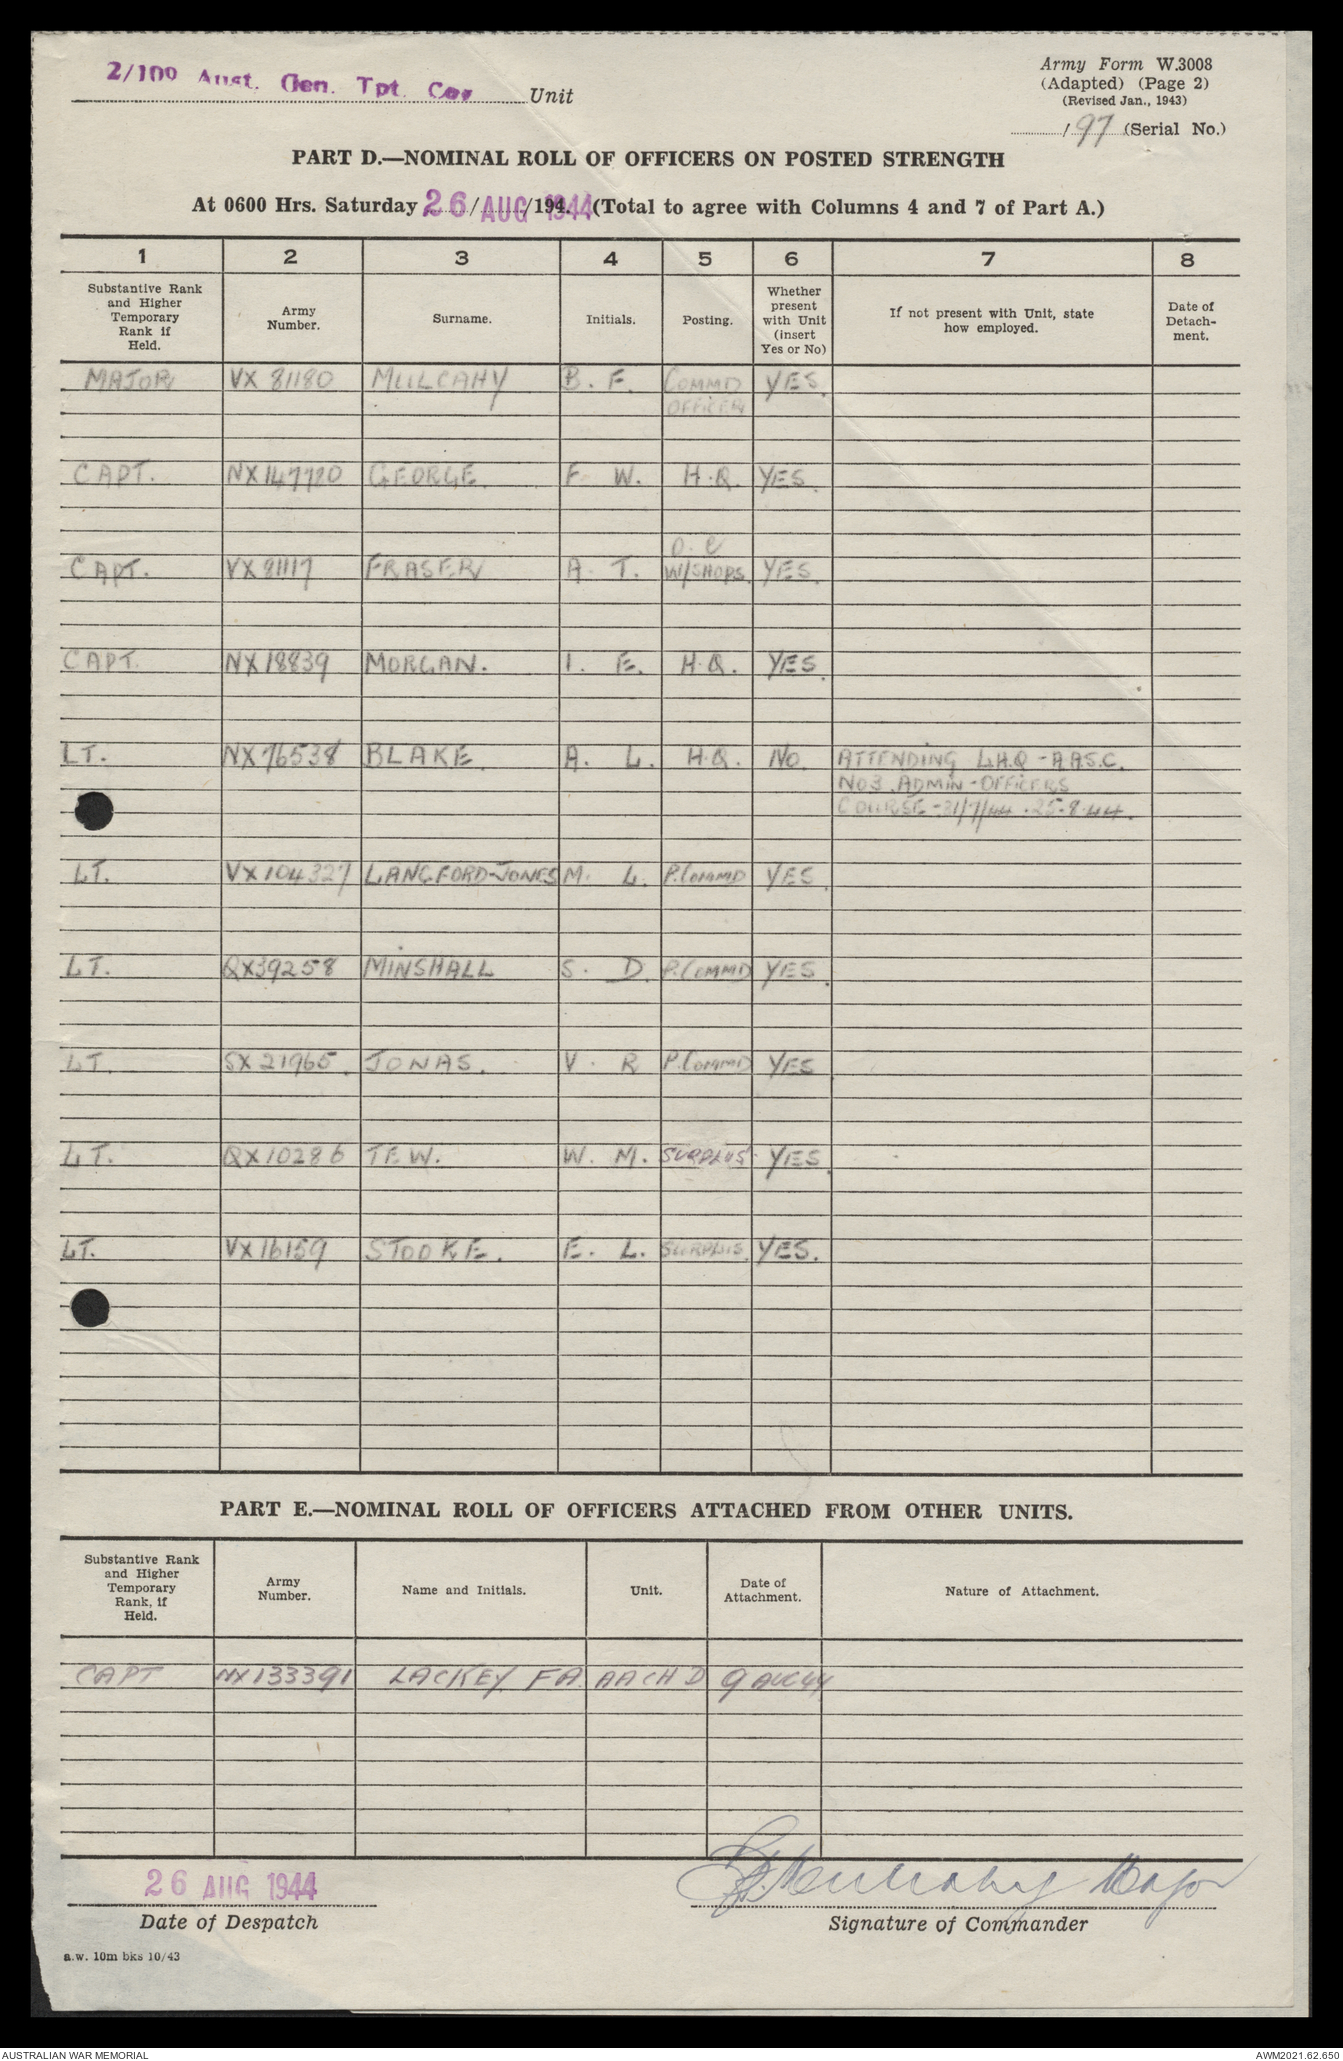 2/109 Aust. Gen. Tpt. Coy Unit
Army Form W.3008
(Adapted) (Page 2)
(Revised Jan., 1943)
/97 (Serial No.)
PART D.—NOMINAL ROLL OF OFFICERS ON POSTED STRENGTH
At 0600 Hrs. Saturday 26/AUG/1944 (Total to agree with Columns 4 and 7 of Part A.)
1 2 3 4 5 6 7 8
Substantive Rank and Higher Temporary Rank if Held. Army Number. Surname. Initials. Posting. Whether present with Unit (insert Yes or No) If not present with Unit, state how employed. Date of Detachment.
MAJOR VX 81180 MULCAHY B. F. COMMD OFFICER YES.
CAPT. NX147720 GEORGE F. W. H.Q. YES.
CAPT. VX81117 FRASER A. T. O.C W/SHOPS. YES.
CAPT. NX18839 MORGAN. I. E. H.Q. YES.
LT. NX76538 BLAKE. A. L. H.Q. NO. ATTENDING L.H.Q - A.A.S.C.
NO3 ADMIN - OFFICERS
COURSE - 31/7/44 . 25.8.44.
LT. VX104327 LANGFORD-JONES M. L. P.COMMD YES.
LT. QX39258 MINSHALL S. D. P.COMMD YES.
LT. SX21965. JONAS. V. R P.COMMD YES.
LT. QX10286 TEW. W. M. SURPLUS YES.
LT. VX16159 STOOKE. E. L. SURPLUS. YES.
PART E.—NOMINAL ROLL OF OFFICERS ATTACHED FROM OTHER UNITS.
Substantive Rank and Higher Temporary Rank, if Held. Army Number. Name and Initials. Unit. Date of Attachment. Nature of Attachment.
CAPT NX133391 LACKEY FA. AACH D 9 AUG 44
26 AUG 1944
B.F. Mulcahy Major
Date of Despatch
Signature of Commander
a.w. 10m bks 10/43
AUSTRALIAN WAR MEMORIAL
AWM2021.62.650